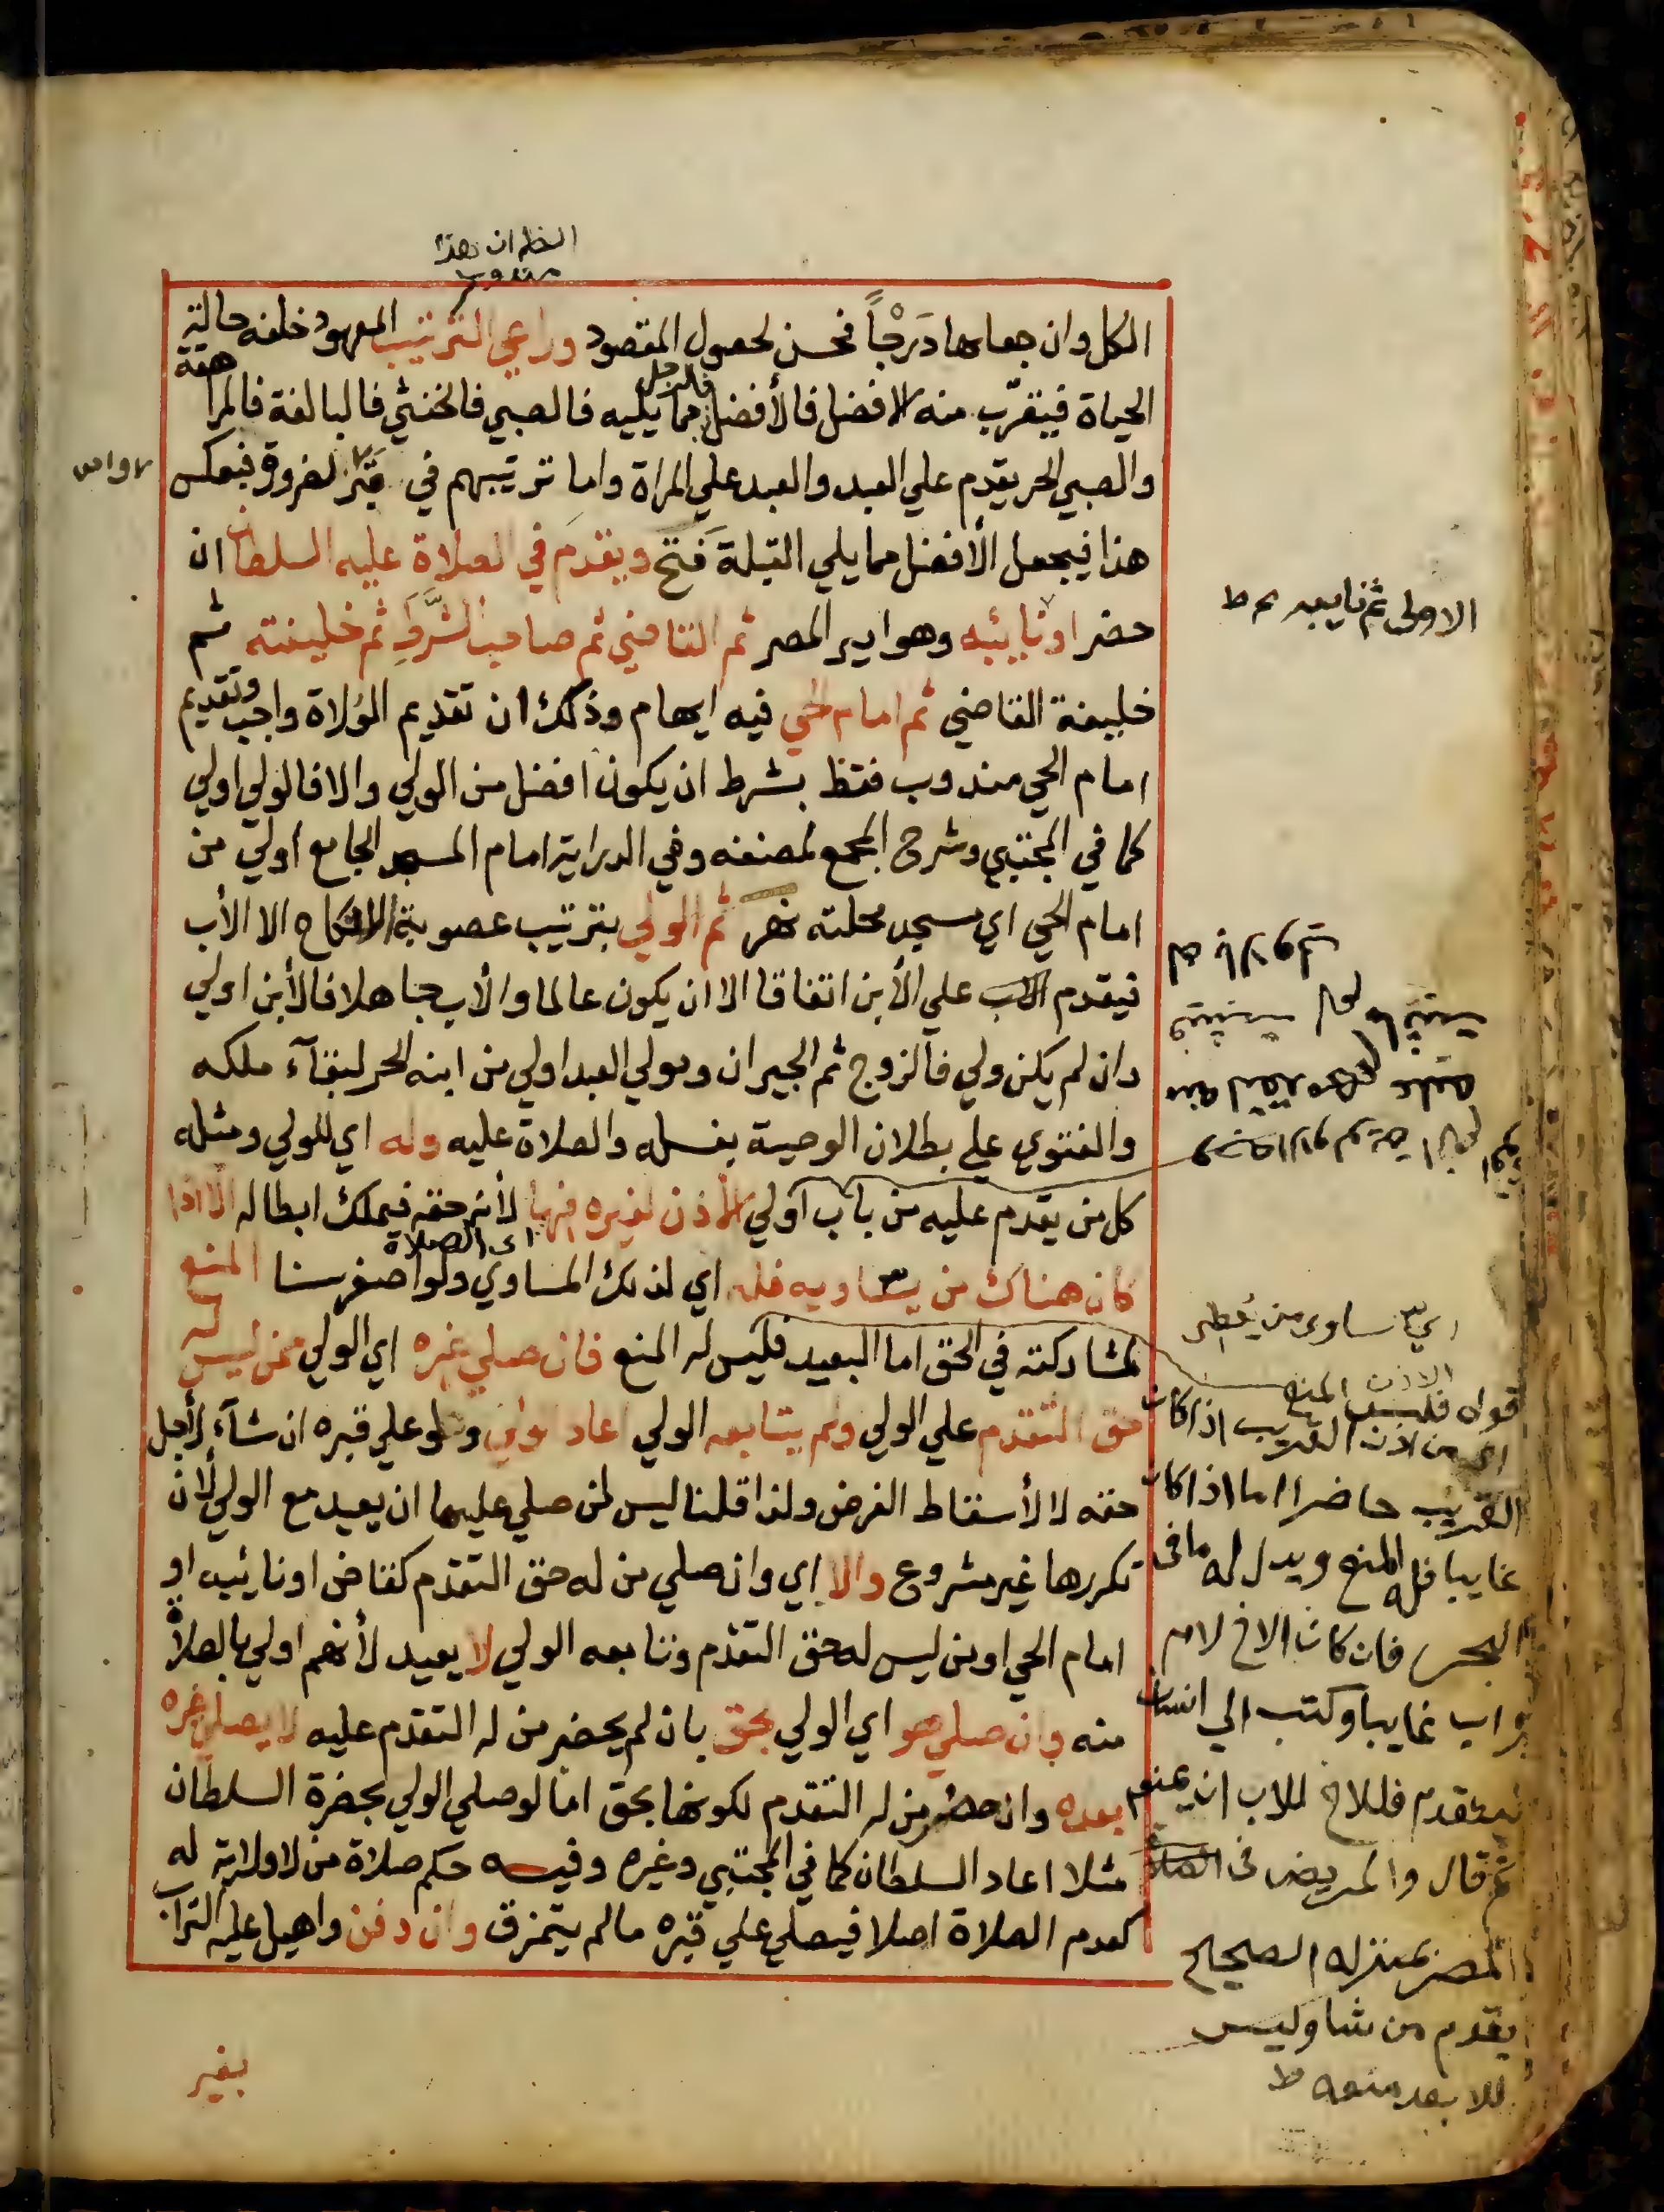 الظاهر ان هذا
مندوب
الكل وان جعلها دَرَجْاً فحسن لحصول المقصود وراعي الترتيب المعهود خلفه حالة
الحياة فيقرّب منه الافضل فالأفضل فالرجل مما يليه فالصبي فالخنثي فالبالغة فالمراهقة
والصبي الحر يقدم علي العبد والعبد علي المراة واما ترتيبهم في قبر لضرورة فبعكس
هذا فيجعل الأفضل مما يلي القبلة فَتح ويقدم في الصلاة عليه السلطان ان
حضر او نايبه وهو امير المصر ثم القاضي ثم صاحب الشَّرَطِ ثم خليفته ثم
خليفة القاضي ثم امام الحي فيه ايهام وذلك ان تقديم الوُلاة واجب وتقديم
امام الحي مندوب فقط بشرط ان يكون افضل من الولي والا فالولي اولي
كما في المجتبي وشرح المجمع لمصنفه وفي الدراية امام المسجد الجامع اولي من
امام الحي اي مسجد محلته نهر ثم الولي بترتيب عصوبة الانكاح الا الأب
فيقدم الاب علي الأبن اتفاقا الا ان يكون عالما والأب جاهلا فالأبن اولي
وان لم يكن ولي فالزوج ثم الجيران ومولي العبد اولي من ابنه الحر لبقآء ملكه
والفتوي علي بطلان الوصية بغسله والصلاة عليه وله اي للولي ومثله
كل من يقدم عليه من باب اولي الأذن لغيره فيها لأنه حقه فيملك ابطاله الا اذا
اى الصلاة
كان هناك من يساويه فله اي لذلك المساوي ولو اصغر سنا المنع
لمشاركته في الحق اما البعيد فليس له المنع فان صلي غيره اي الولي ممن ليس له
حق التقدم علي الولي ولم يتابعه الولي اعاد الولي ولو علي قبره ان شآء لأجل
حقه لا لأسقاط الفرض ولذا قلنا ليس لمن صلي عليها ان يعيد مع الولي لأن
تكررها غير مشروع والا اي وان صلي من له حق التقدم كقاض او نائبه او
امام الحي او من ليس له حق التقدم وتابعه الولي لا يعيد لأنهم اولي بالصلاة
منه وان صلي هو اي الولي بحق بان لم يحضر من له التقدم عليه لا يصلي غيره
بعده وان حضر من له التقدم لكونها بحق اما لو صلي الولي بحضرة السلطان
مثلا اعاد السلطان كما في المجتبي وغيره وفيه حكم صلاة من لا ولاية له
كعدم الصلاة اصلا فيصلي علي قبره ما لم يتمزق وان دفن واهيل عليه التراب
بغير
الاولى ثم نايبه ح ط
اي يساوى من يُعطى
الاذن
قوله فليس له المنع
اى من اذن القريب اذا كان
القريب حاضرا اما اذا كان
غايبا فله المنع ويدل له ما فى
البحر فان كان الاخ لام
واب غايبا وكتب الي انسان
ليتقدم فللاخ للاب ان يمنعه
ثم قال والمريض فى
المصر بمنزلة الصحيح
يقدم من شا وليس
للابعد منعه ط